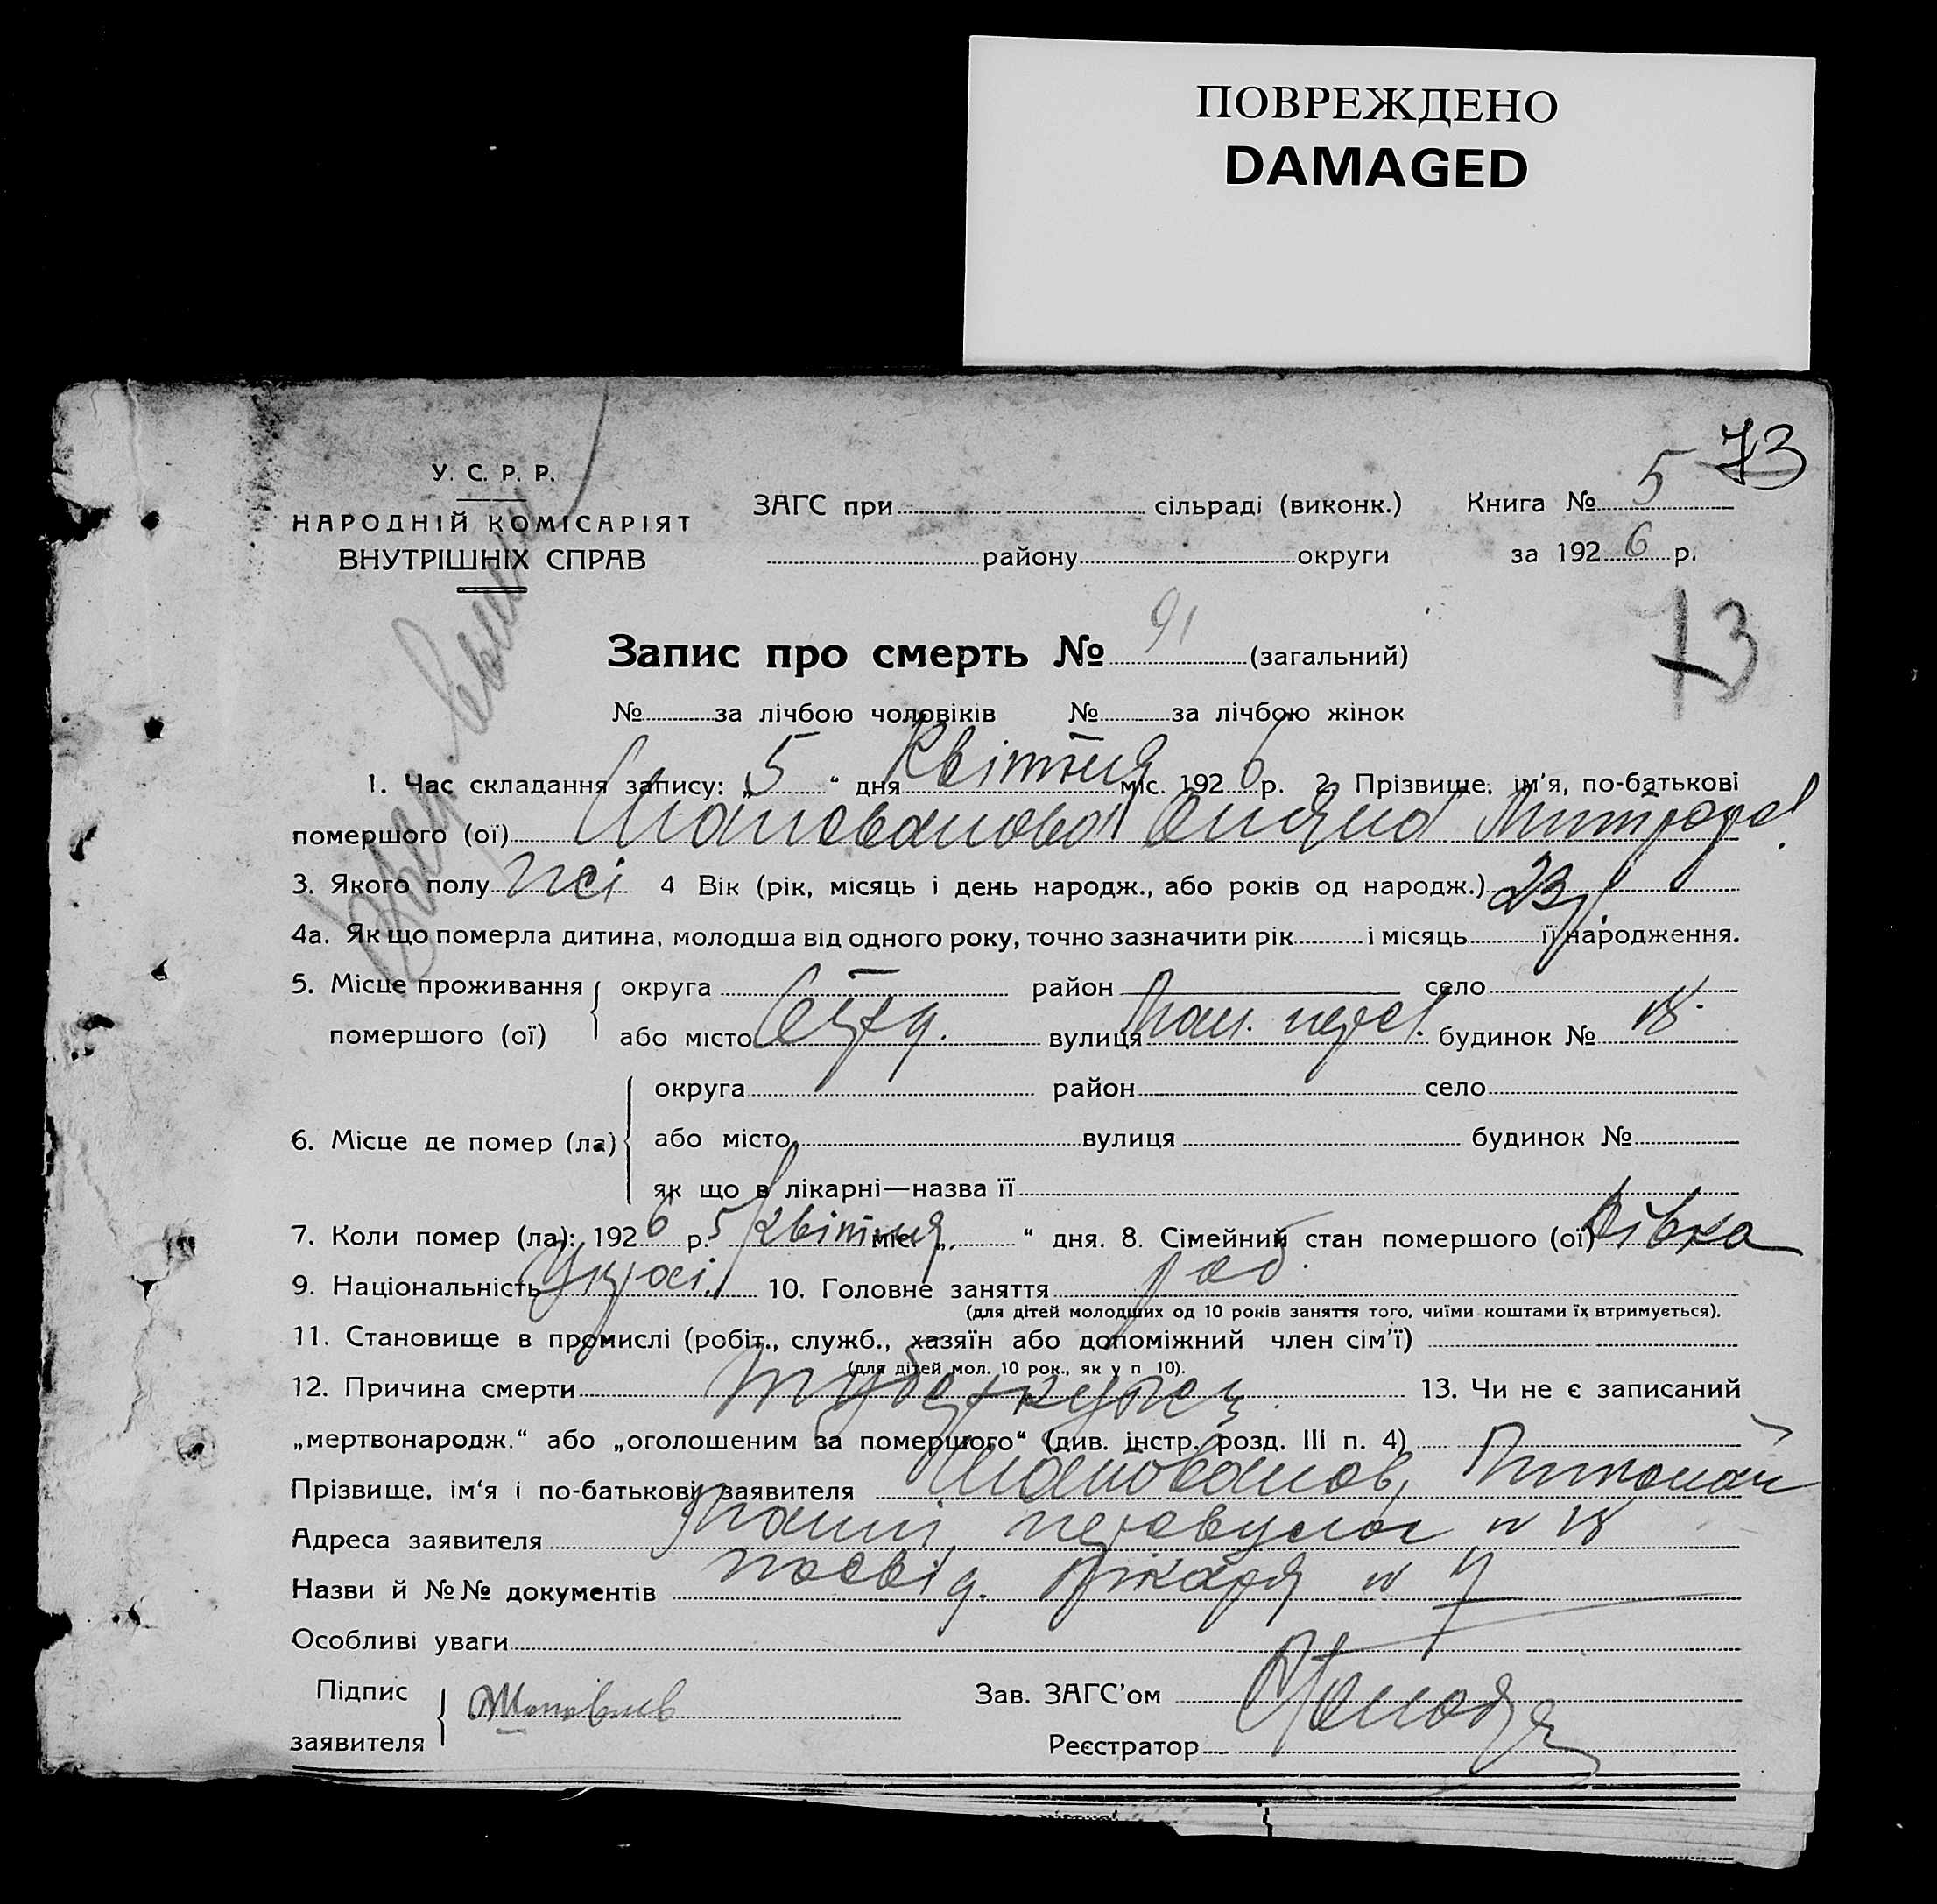 ПОВРЕЖДЕНО
DAMAGED
73
У. С. Р. Р.
НАРОДНІЙ КОМІСАРІЯТ
ВНУТРІШНІХ СПРАВ
ЗАГС при сільраді (виконк.) Книга № 5
району округи за 1926 р.
73
Запис про смерть № 91 (загальний)
№ за лічбою чоловіків № за лічбою жінок
1. Час складання запису: „5“ дня Квітня міс. 1926 р. 2. Прізвище, ім'я, по-батькові
помершого (ої)
3. Якого полу жі 4 Вік (рік, місяць і день народж., або років од народж.) 23 р.
4а. Як що померла дитина, молодша від одного року, точно зазначити рік і місяць її народження.
5. Місце проживання округа район село
помершого (ої) або місто вулиця будинок № 18
6. Місце де помер (ла) округа район село
або місто вулиця будинок №
як що в лікарні—назва її
7. Коли помер (ла): 1926 р. 5 Квітня міс. „ “ дня. 8. Сімейний стан помершого (ої) Дівка
9. Національність 10. Головне заняття роб.
(для дітей молодших од 10 років заняття того, чиїми коштами їх втримується).
11. Становище в промислі (робіт., служб., хазяїн або допоміжний член сім'ї)
(для дітей мол. 10 рок., як у п 10).
12. Причина смерти туберкульоз 13. Чи не є записаний
„мертвонародж.“ або „оголошеним за помершого“ (див. інстр. розд. III п. 4)
Прізвище, ім'я і по-батькові заявителя
Адреса заявителя перевулок № 18
Назви й №№ документів посвід. лікаря №
Особливі уваги
Підпис
заявителя
Зав. ЗАГС'ом
Реєстратор